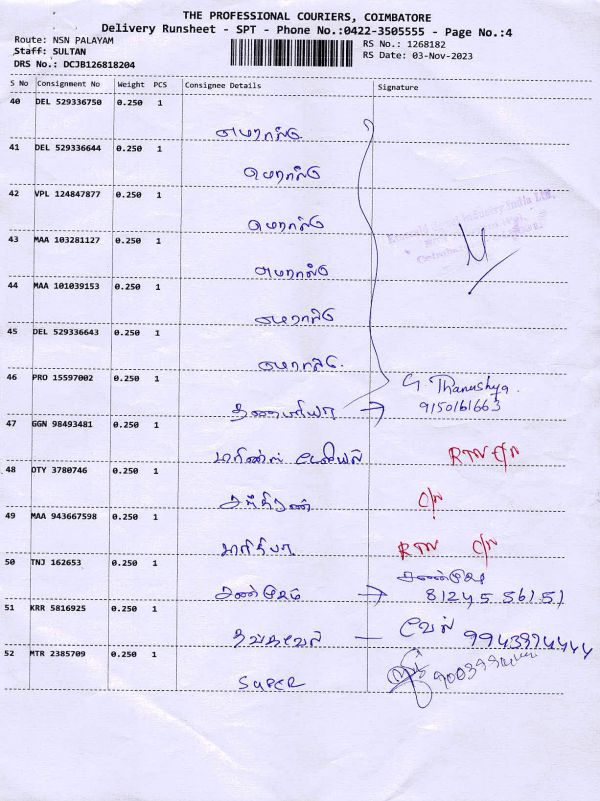 THE PROFESSIONAL COURIERS, COIMBATORE
Delivery Runsheet - SPT - Phone No.:0422-3505555 - Page No.:4
Route: NSN PALAYAM
RS No.: 1268182
Staff: SULTAN
RS Date: 03-Nov-2023
DRS No.: DCJB126818204
S No Consignment No Weight PCS Consignee Details Signature
40 DEL 529336750 0.250 1
எமரால்டு
41 DEL 529336644 0.250 1
எமரால்டு
42 VPL 124847877 0.250 1
எமரால்டு
43 MAA 103281127 0.250 1
எமரால்டு
44 MAA 101039153 0.250 1
எமரால்டு
45 DEL 529336643 0.250 1
எமரால்டு
46 PRO 15597002 0.250 1
G. Thanushya.
9150161663
47 GGN 98493481 0.250 1
RTN C/N
48 OTY 3780746 0.250 1
C/N
49 MAA 943667598 0.250 1
RTN C/N
50 TNJ 162653 0.250 1
சண்முகம் → 81245 56151
51 KRR 5816925 0.250 1
வேல்
52 MTR 2385709 0.250 1
SUPER